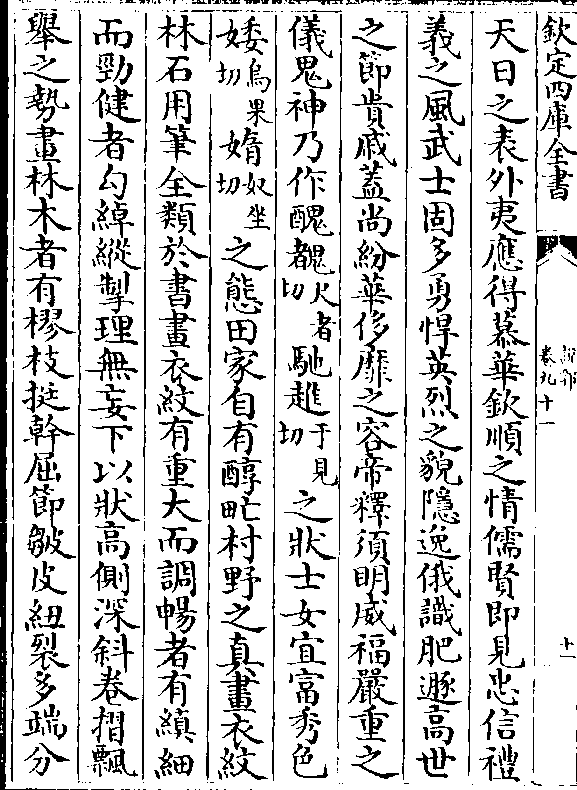 欽定四庫全書 説郛 卷九十一 十一
天日之表外夷應得慕華欽順之情儒賢即見忠信禮
義之風武士固多勇悍英烈之貌隱逸俄識肥遯高世
之節貴戚蓋尚紛華侈靡之容帝釋須明威福嚴重之
儀鬼神乃作醜䰩火者切馳趡于見切之狀士女宜富秀色
婑烏果切媠奴坐切之態田家自有醇甿村野之真畫衣紋
林石用筆全類於書畫衣紋有重大而調暢者有縝細
而勁健者勾綽縱掣理無妄下以狀高側深斜卷摺飄
舉之勢畫林木者有樛枝挺幹屈節皴皮紐裂多端分